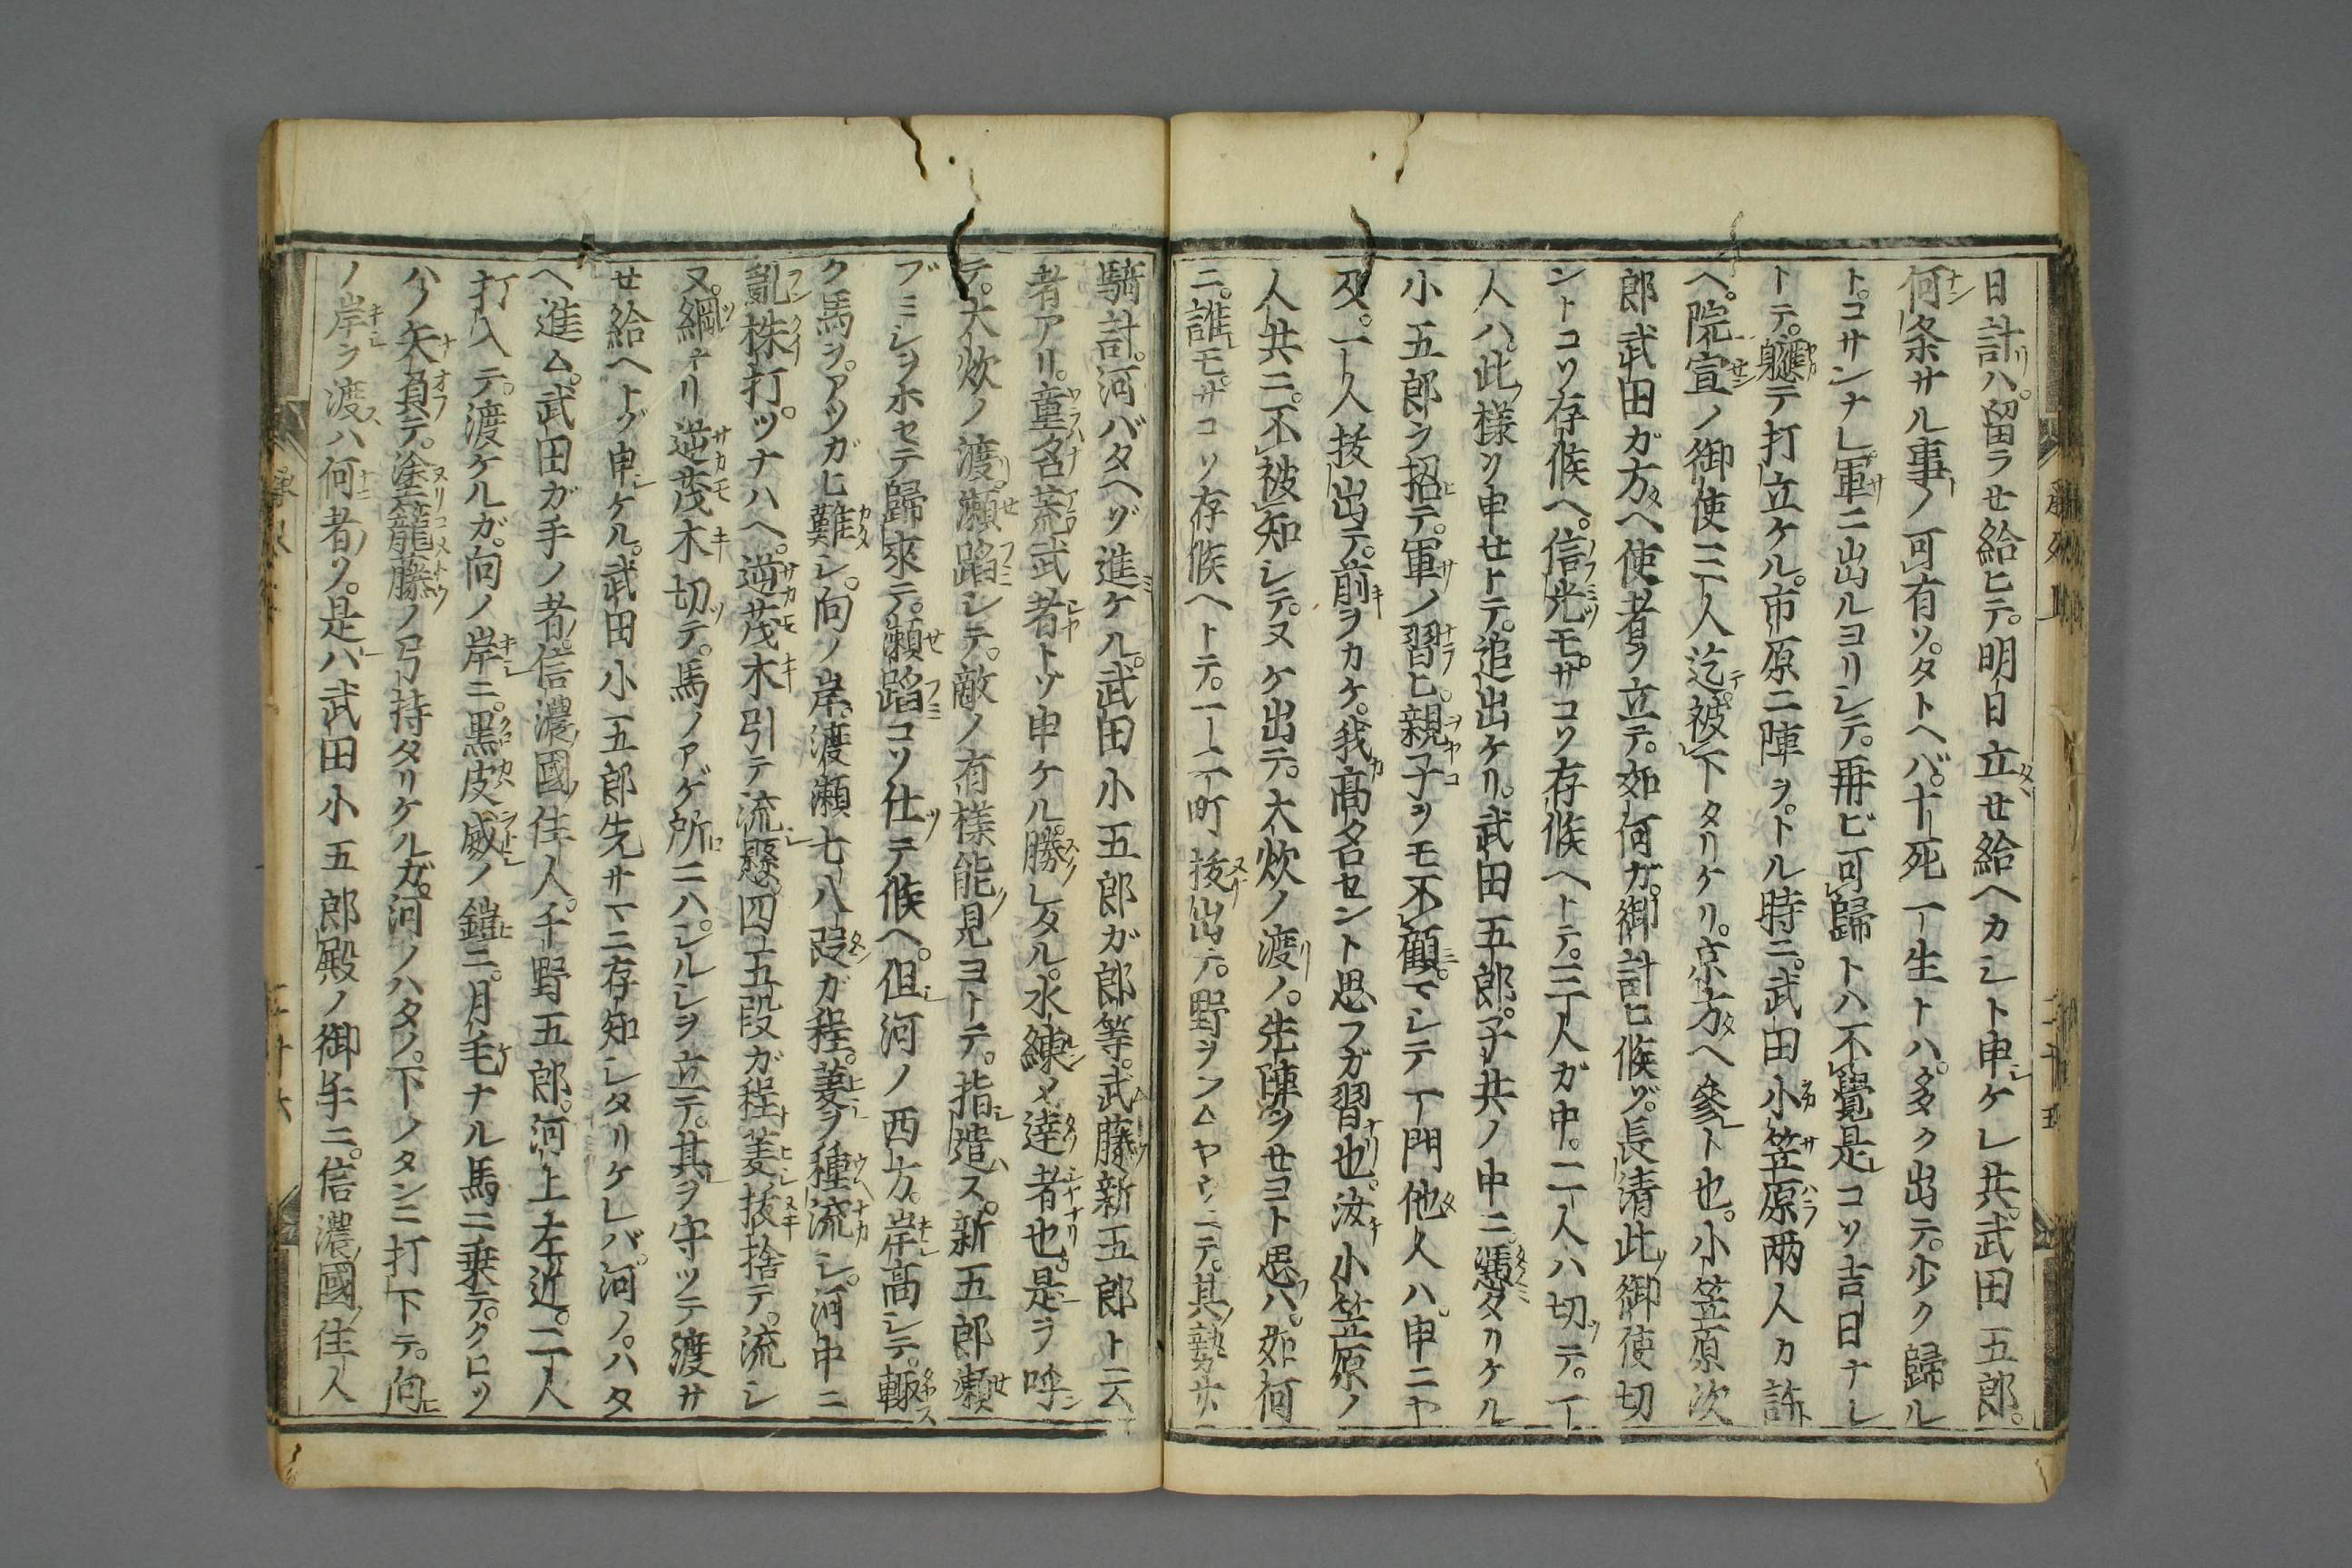 日計ハ。留ラせ給ヒテ。明日立せ給ヘカシト申ケレ共。武田五郎。
何条サル事ノ可有ソ。タトヘバ。十死一生トハ。多ク出テ。少ク歸ル
ト。コサンナレ。軍ニ出ルヨリシテ。再ビ可歸トハ不覺。是コソ吉日ナレ
トテ。軈テ打立ケル。市原ニ陣ヲ。トル時ニ。武田小笠原両人カ許
ヘ。院宣ノ御使三人迄。被下タリケリ。京方ヘ參ト也。小笠原次
郎武田ガ方ヘ使者ヲ立テ。如何ガ。御計ヒ候ゾ。長清此御使切
ントコソ存候ヘ。信光モ。サコソ存候ヘトテ。三人ガ中。二人ハ切テ。一
人ハ。此様ヲ申せトテ。追出ケリ。武田五郎。子共ノ中ニ。憑タリケル
小五郎ヲ招テ。軍ノ習ヒ。親子ヲモ不顧。マシテ一門他人ハ。申ニヤ
及。一人抜出テ。前ヲカケ。我高名セント思フガ習也。汝小笠原ノ
人共ニ。不被知シテ。ヌケ出テ。大炊ノ渡ノ。先陣ヲせヨト思ハ。如何
ニ。誰モ。サコソ存候ヘトテ。一二町抜出テ。野ヲフムヤウニテ。其勢廿
騎計。河バタヘゾ進ケル。武田小五郎ガ郎等。武藤新五郎ト云
者アリ。童名荒武者トゾ申ケル。勝レタル。水練ノ達者也。是ヲ呼
テ。大炊ノ渡瀬蹈シテ。敵ノ有様能見ヨトテ。指遣ス。新五郎瀬
ブミシヲホセテ歸來テ。瀬蹈コソ仕テ候ヘ。但河ノ西方。岸高シテ。輙
ク馬ヲ。アツカヒ難シ。向ノ岸。渡瀬七八段ガ程。菱ヲ種流シ。河中ニ
亂株打。ツナハヘ。逆茂木引テ流懸。四五段ガ程菱抜捨テ。流シ
ヌ。綱キリ逆茂木切テ。馬ノアゲ所ニハ。シルシヲ立テ。其ヲ守ツテ渡サ
せ給ヘトゾ申ケル。武田小五郎先サマニ存知シタリケレバ。河ノ。ハタ
ヘ進ム。武田ガ手ノ者。信濃國住人。千野五郎。河上左近。二人
打入テ。渡ケルガ。向ノ岸ニ。黒皮威ノ鎧ニ。月毛ナル馬ニ乗テ。クロツ
ハノ矢負テ。塗籠藤ノ弓持タリケルガ。河ノハタノ。下ノタンニ打下テ。向
ノ岸ヲ渡ハ何者ゾ。是ハ武田小五郎殿ノ御手ニ。信濃國住人